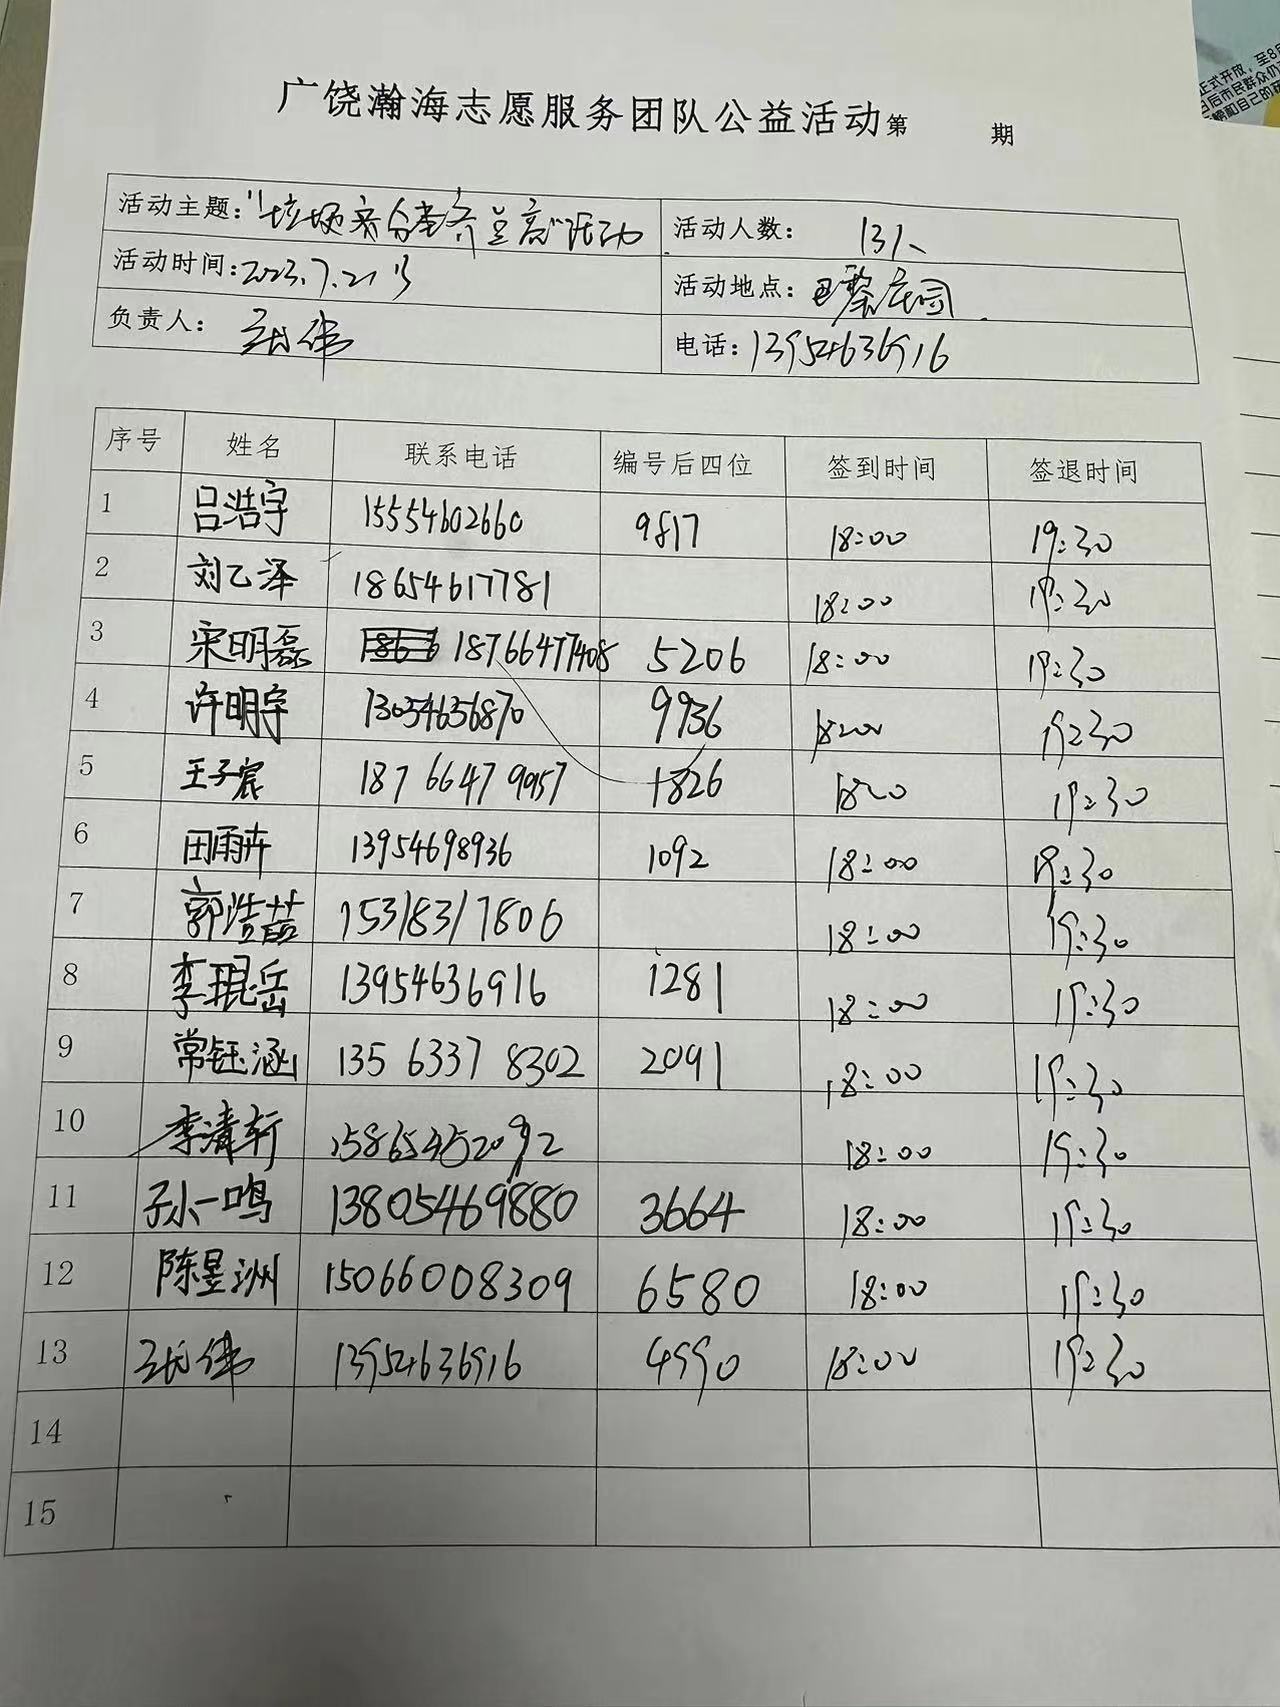 广饶瀚海志愿服务团队公益活动第 期
活动主题: 活动人数: 13人
活动时间:2023.7.21号 活动地点:
负责人: 张伟 电话:13954636916
序号 姓名 联系电话 编号后四位 签到时间 签退时间
1 吕浩宇 15554602660 9817 18:00 19:30
2 刘乙泽 18654617781 18:00 19:30
3 宋明磊 18766477408 5206 18:00 19:30
4 许明宇 13054656870 9936 18:00 19:30
5 王子宸 18766479957 1826 18:00 19:30
6 田雨卉 13954698936 1092 18:00 19:30
7 15318317806 18:00 19:30
8 李琨岳 13954636916 1281 18:00 19:30
9 常钰涵 13563378302 2091 18:00 19:30
10 李清轩 15865452092 18:00 19:30
11 孙一鸣 13805469880 3664 18:00 19:30
12 陈昱洲 15066008309 6580 18:00 19:30
13 张伟 13954636916 4990 18:00 19:30
14
15